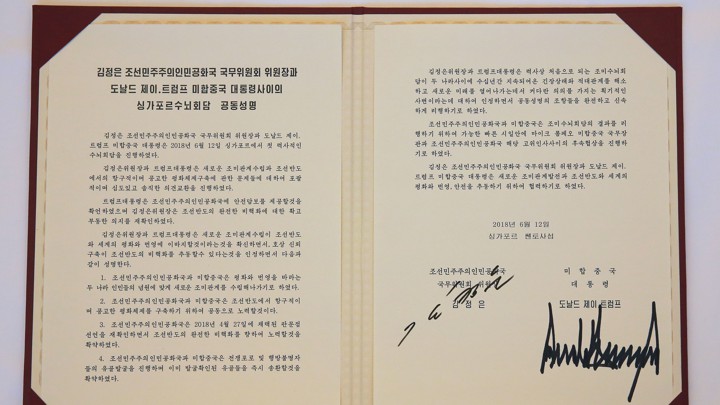 김정은 조선민주주의인민공화국 국무위원회 위원장과
도날드 제이.트럼프 미합중국 대통령사이의
싱가포르수뇌회담 공동성명
김정은 조선민주주의인민공화국 국무위원회 위원장과 도날드 제이.
트럼프 미합중국 대통령은 2018년 6월 12일 싱가포르에서 첫 력사적인
수뇌회담을 진행하였다.
김정은위원장과 트럼프대통령은 새로운 조미관계수립과 조선반도
에서의 항구적이며 공고한 평화체제구축에 관한 문제들에 대하여 포괄
적이며 심도있고 솔직한 의견교환을 진행하였다.
트럼프대통령은 조선민주주의인민공화국에 안전담보를 제공할것을
확언하였으며 김정은위원장은 조선반도의 완전한 비핵화에 대한 확고
부동한 의지를 재확인하였다.
김정은위원장과 트럼프대통령은 새로운 조미관계수립이 조선반도
와 세계의 평화와 번영에 이바지할것이라는것을 확신하면서, 호상 신뢰
구축이 조선반도의 비핵화를 추동할수 있다는것을 인정하면서 다음과
같이 성명한다.
1. 조선민주주의인민공화국과 미합중국은 평화와 번영을 바라는
두 나라 인민들의 념원에 맞게 새로운 조미관계를 수립해나가기로 하였다.
2. 조선민주주의인민공화국과 미합중국은 조선반도에서 항구적이
며 공고한 평화체제를 구축하기 위하여 공동으로 노력할것이다.
3. 조선민주주의인민공화국은 2018년 4월 27일에 채택된 판문점
선언을 재확인하면서 조선반도의 완전한 비핵화를 향하여 노력할것을
확약하였다.
4. 조선민주주의인민공화국과 미합중국은 전쟁포로 및 행방불명자
들의 유골발굴을 진행하며 이미 발굴확인된 유골들을 즉시 송환할것을
확약하였다.
김정은위원장과 트럼프대통령은 력사상 처음으로 되는 조미수뇌회
담이 두 나라사이에 수십년간 지속되여온 긴장상태와 적대관계를 해소
하고 새로운 미래를 열어나가는데서 커다란 의의를 가지는 획기적인
사변이라는데 대하여 인정하면서 공동성명의 조항들을 완전하고 신속
하게 리행하기로 하였다.
조선민주주의인민공화국과 미합중국은 조미수뇌회담의 결과를 리
행하기 위하여 가능한 빠른 시일안에 마이크 폼페오 미합중국 국무장
관과 조선민주주의인민공화국 해당 고위인사사이의 후속협상을 진행하
기로 하였다.
김정은 조선민주주의인민공화국 국무위원회 위원장과 도날드 제이.
트럼프 미합중국 대통령은 새로운 조미관계발전과 조선반도와 세계의
평화와 번영, 안전을 추동하기 위하여 협력하기로 하였다.
2018년 6월 12일
싱가포르 쎈토사섬
조선민주주의인민공화국
국무위원회 위원장
김 정 은
미 합 중 국
대 통 령
도날드 제이.트럼프